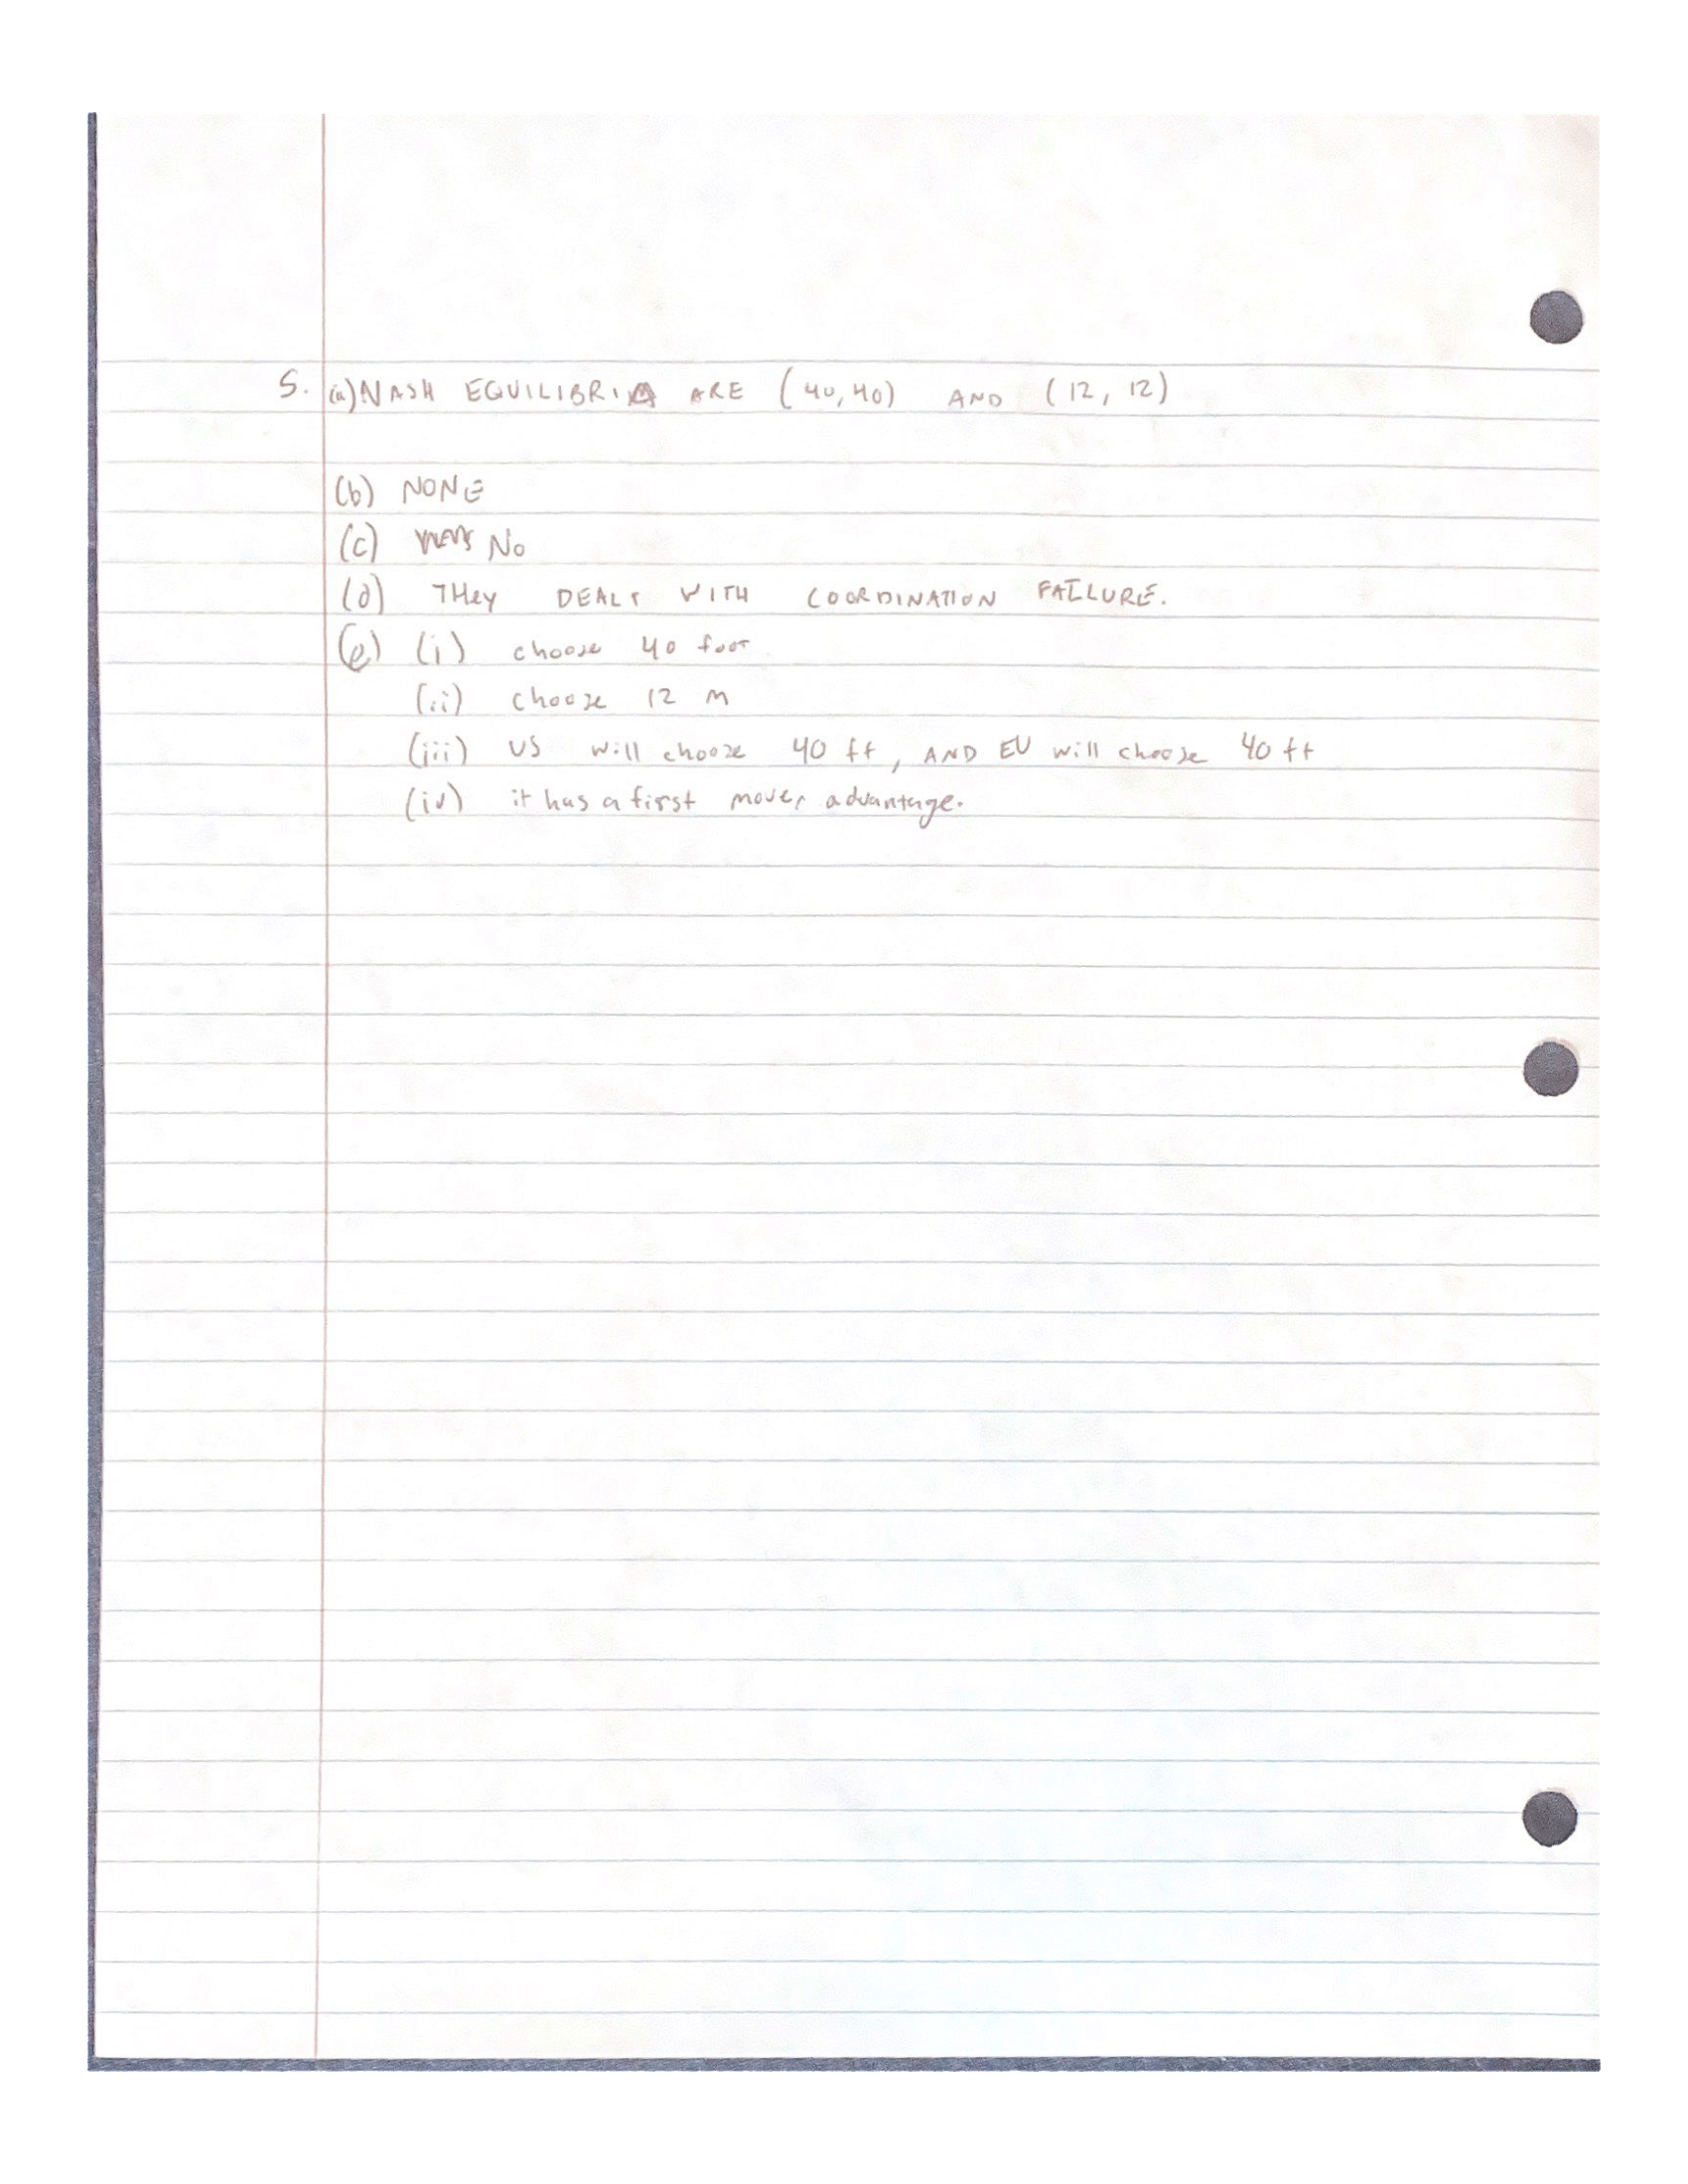 5. (a) NASH EQUILIBRIA ARE (40,40) AND (12, 12)
(b) NONE
(c) No
(d) THey DEALT WITH COORDINATION FAILURE.
(e) (i) choose 40 foot
(ii) choose 12 m
(iii) US will choose 40 ft, AND EU will choose 40 ft
(iv) it has a first mover advantage.